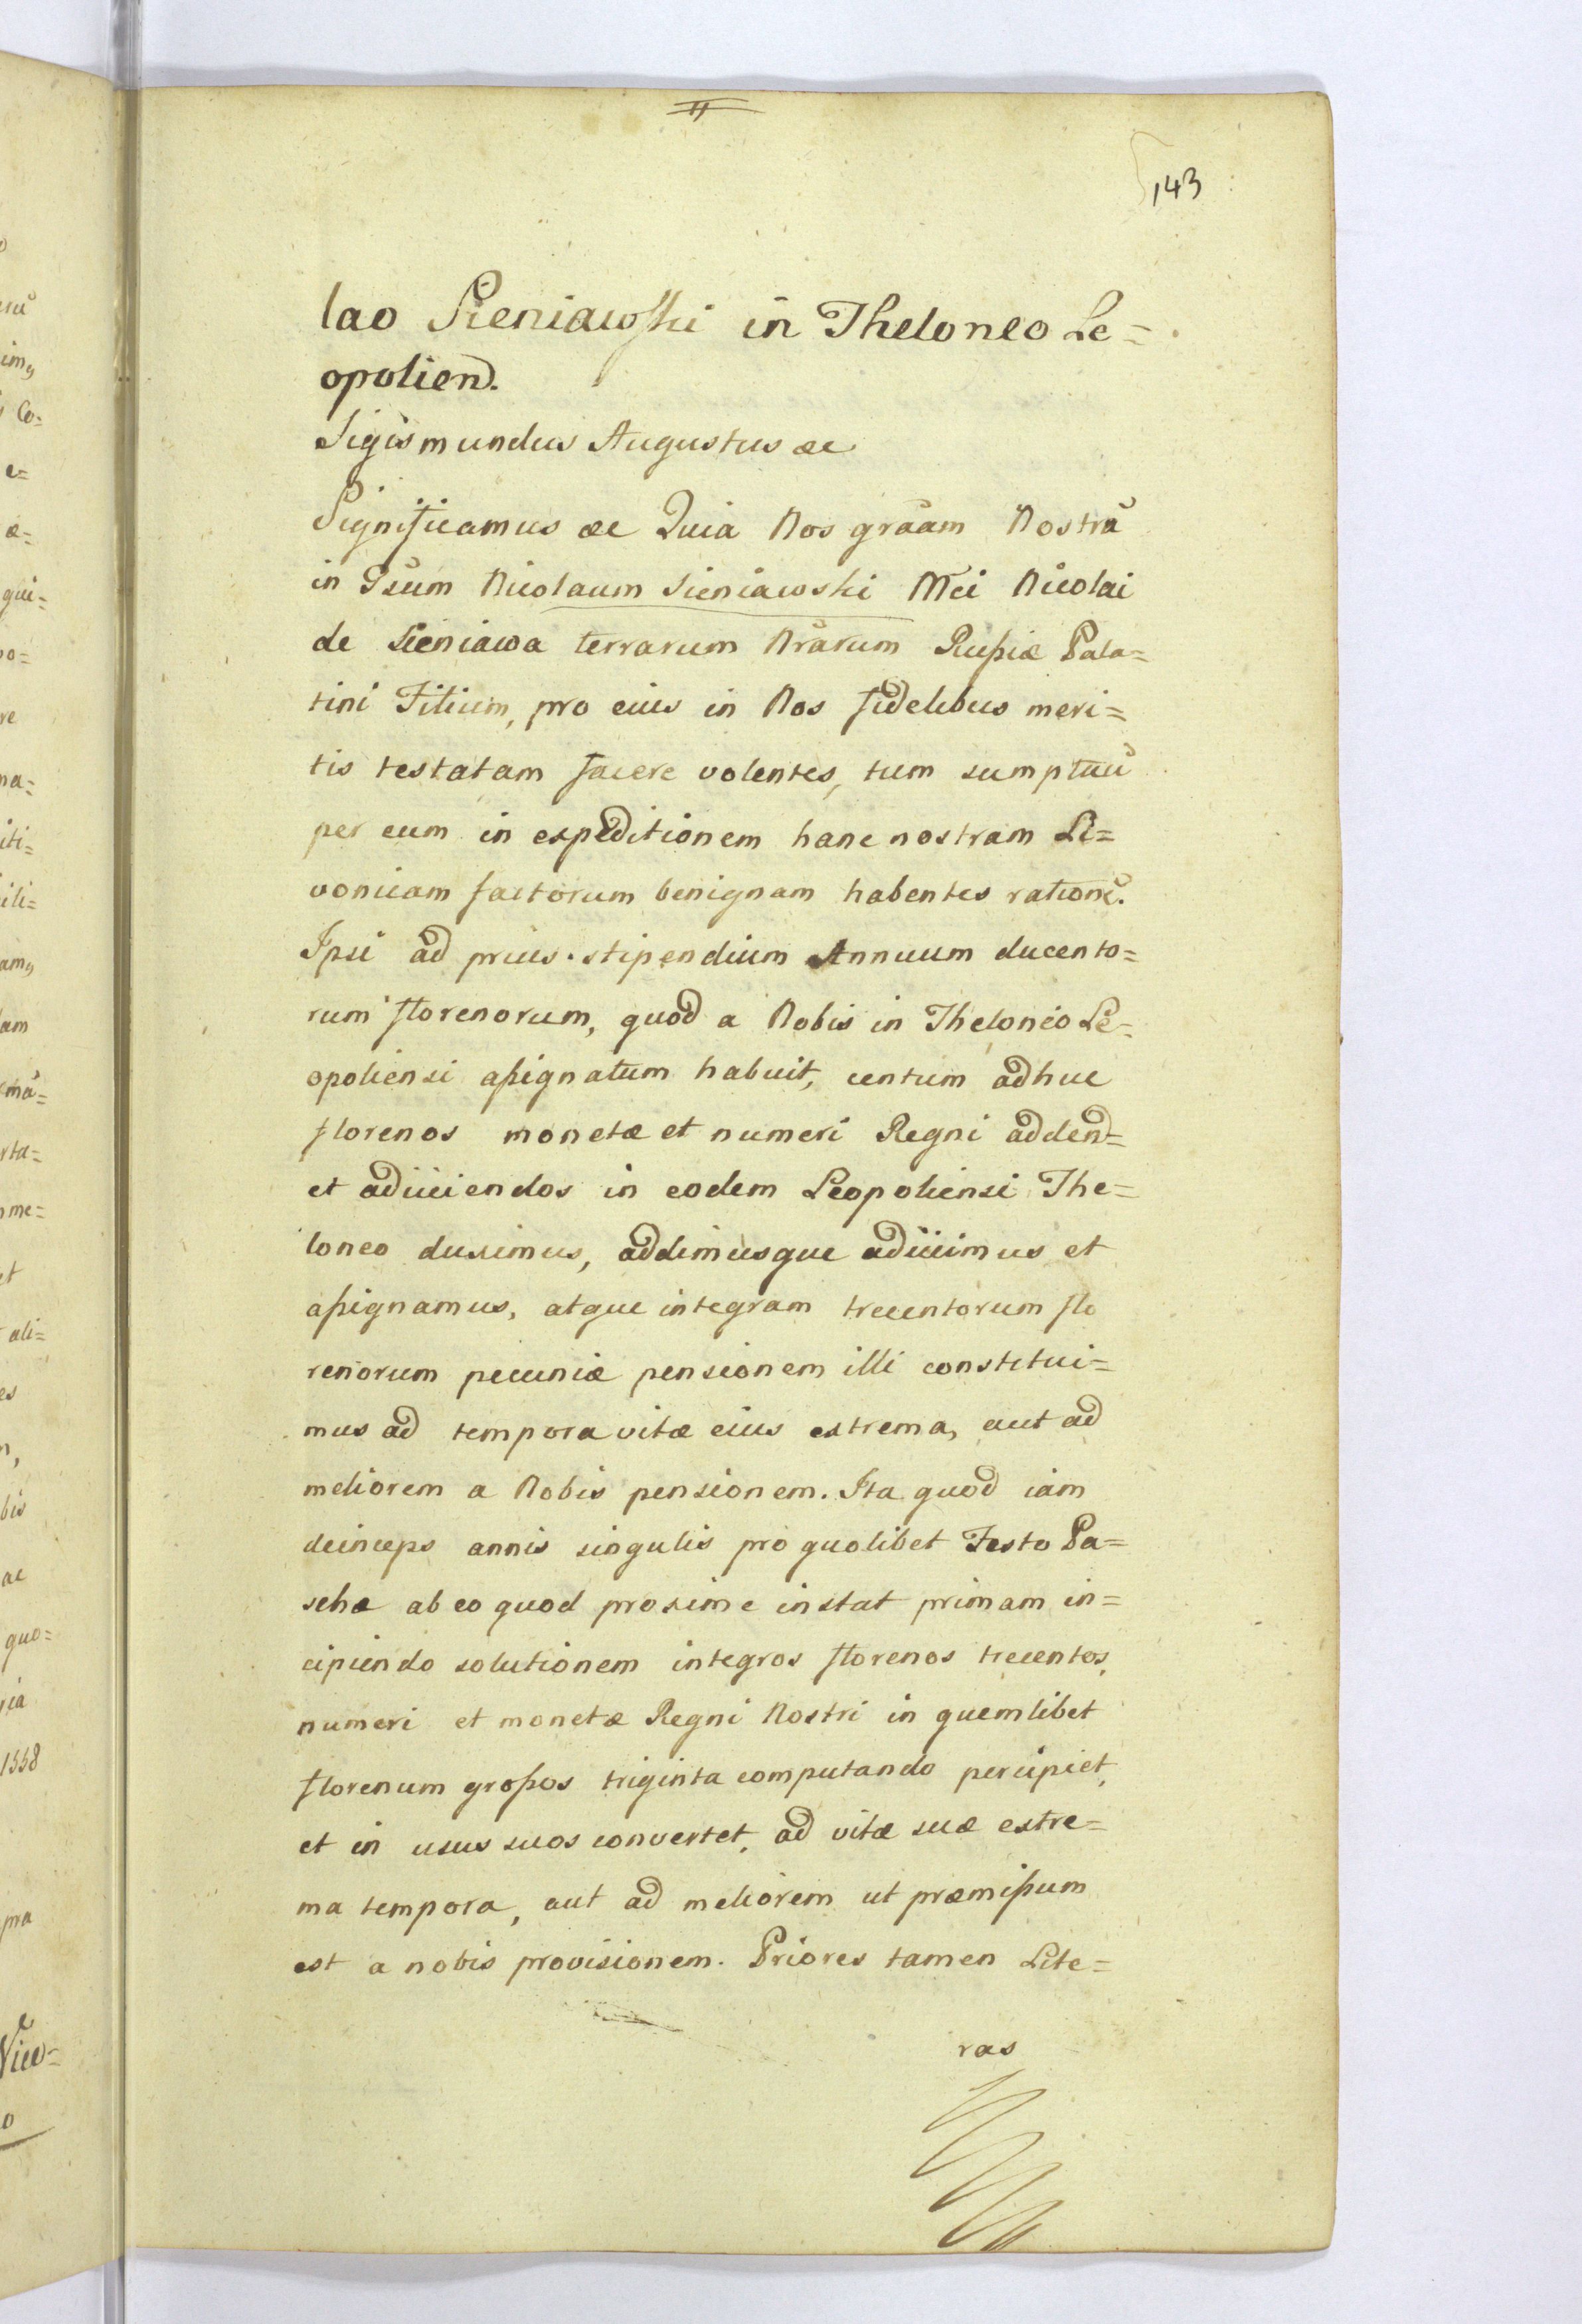 143
lao Sieniawski in Theloneo Le=
opolien.
Sigismundus Augustus ac
Significamus ac Quia Nos grãam Nostrã
in Gsum Nicolaum Sieniawski Mci Nicolai
de Sieniawa terrarum Nrarum Rußiæ Pala=
tini Filium, pro eius in Nos fidelibus meri=
tis testatam facere volentes, tum sumptuũ
per eum in expeditionem hanc nostram Li=
vonicam factorum benignam habentes rationẽ.
Ipsi ad prius stipendium Annuum ducento=
rum florenorum, quod a Nobis in Theloneo Le=
opoliensi aßignatum habuit, centum adhuc
florenos monetæ et numeri Regni addend=
et adiiciendos in eodem Leopoliensi The=
loneo duximus, addimusque adiicimus et
aßignamus, atque integram trecentorum flo
renorum pecuniæ pensionem illi constitui=
mus ad tempora vitæ eius extrema, aut ad
meliorem a Nobis pensionem. Ita quod iam
deinceps annis singulis pro quolibet Festo Pa=
schæ ab eo quod proxime instat primam in=
cipiendo solutionem integros florenos trecentos,
numeri et monetæ Regni Nostri in quemlibet
florenum großos triginta computando percipiet,
et in usus suos convertet, ad vitæ suæ extre=
ma tempora, aut ad meliorem ut præmißum
est a nobis provisionem. Priores tamen Lite=
ras